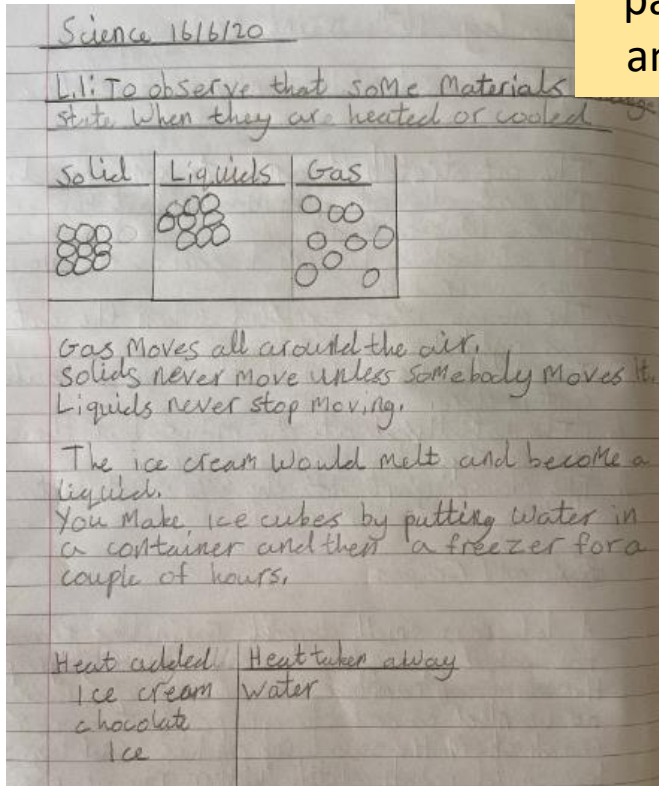 pa
ar
Science 16/6/20
L.I: To observe that some materials
state when they are heated or cooled
Solid Liquids Gas
Gas moves all around the air.
Solids never move unless somebody moves it.
Liquids never stop moving.
The ice cream would melt and become a
liquid.
You make ice cubes by putting water in
a container and then a freezer for a
couple of hours.
Heat added Heat taken away
Ice cream water
chocolate
Ice